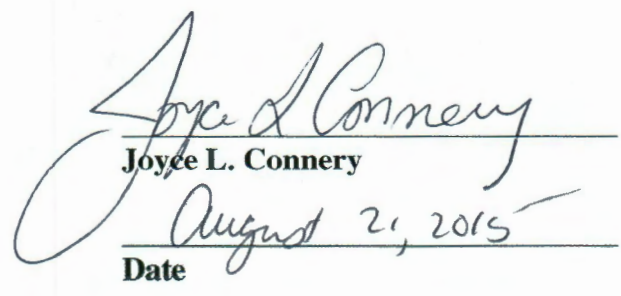 Joyce L Connery
Joyce L. Connery
August 21, 2015
Date